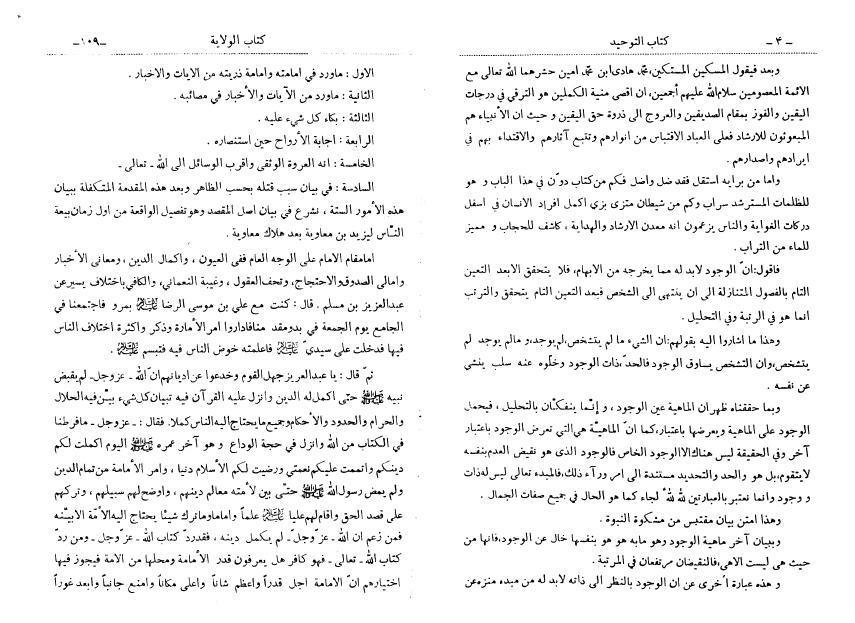 ـ ٤ ـ
كتاب التوحيد
وبعد فيقول المسكين المستكين، محمد هادى ابن محمد امين حشرهما الله تعالى مع
الائمة المعصومين سلام الله عليهم أجمعين، ان اقصى منية الكملين هو الترقي في درجات
اليقين والفوز بمقام الصديقين والعروج الى ذروة حق اليقين و حيث ان الأنبياء هم
المبعوثون للارشاد فعلى العباد الاقتباس من انوارهم وتتبع آثارهم والاقتداء بهم في
ايرادهم واصدارهم .
واما من برايه استقل فقد ضل واضل فكم من كتاب دوّن في هذا الباب و هو
للظلمات المسترشد سراب وكم من شيطان متزى بزي اكمل افراد الانسان في اسفل
دركات الغواية والناس يزعمون انه معدن الارشاد والهداية ، كاشف للحجاب و مميز
للماء من التراب .
فاقول: انّ الوجود لابد له مما يخرجه من الابهام، فلا يتحقق الابعد التعين
التام بالفصول المتنازلة الى ان ينتهى الى الشخص فبعد التعين التام يتحقق والترتب
انما هو في الرتبة وفي التحليل .
وهذا ما اشاروا اليه بقولهم: ان الشيء ما لم يتشخص، لم يوجد، و مالم يوجد لم
يتشخص، وان التشخص يساوق الوجود فالحدّ ذات الوجود وخلّوه عنه سلب ينشي
عن نفسه .
وبما حققناه ظهر ان الماهية عين الوجود ، و إنّما ينفكّان بالتحليل ، فيحمل
الوجود على الماهية ويعرضها باعتبار، كما انّ الماهيّة هي التي تعرض الوجود باعتبار
آخر وفي الحقيقة ليس هناك الا الوجود الخاص فالوجود الذى هو نقيض العدم بنفسه
لايتقوم، بل هو والحد والتحديد مستندة الى امر ورآء ذلك، فالمبدء تعالى ليس له ذات
و وجود وانما نعتبر بالعبارتين لله لجاء كما هو الحال في جميع صفات الجمال .
وهذا امتن بيان مقتبس من مشكوة النبوة .
وببيان آخر ماهية الوجود وهو مابه هو هو بنفسها خال عن الوجود، فانها من
حيث هى ليست الاهى، فالنقيضان مرتفعان في المرتبة .
و هذه عبارة أخرى عن ان الوجود بالنظر الى ذاته لابد له من مبدء منزه عن
كتاب الولاية
ـ ١٠٩ ـ
الاول : ماورد في امامته وامامة ذريته من الايات والاخبار .
الثانية : ماورد من الآيات والأخبار في مصائبه .
الثالثة : بكاء كل شيء عليه .
الرابعة : اجابة الأرواح حين استنصاره .
الخامسة : انه العروة الوثقى واقرب الوسائل الى الله ـ تعالى ـ
السادسة : في بيان سبب قتله بحسب الظاهر وبعد هذه المقدمة المتكفلة ببيان
هذه الأمور الستة ، نشرع في بيان اصل المقصد وهو تفصيل الواقعة من اول زمان بيعة
النّاس ليزيد بن معاوية بعد هلاك معاوية .
امامقام الامام على الوجه العام ففى العيون ، واكمال الدين ، ومعانى الأخبار
وامالى الصدوق والاحتجاج، وتحف العقول ، وغيبة النعماني، والكافي باختلاف يسير عن
عبدالعزيز بن مسلم . قال : كنت مع علي بن موسى الرضا عليه السلام بمرو فاجتمعنا في
الجامع يوم الجمعة في بدو مقدمنا فاداروا امر الأمارة وذكر واكثرة اختلاف الناس
فيها فدخلت على سيدي عليه السلام فاعلمته خوض الناس فيه فتبسم عليه السلام .
ثمّ قال : يا عبدالعزيز جهل القوم وخدعوا عن اديانهم انّ الله ـ عز وجل ـ لم يقبض
نبيه صلى الله عليه وآله حتّى اكمل له الدين وانزل عليه القرآن فيه تبيان كل شيء بيّن فيه الحلال
والحرام والحدود والأحكام وجميع ما يحتاج اليه الناس كملا. فقال : ـ عز وجل ـ مافرطنا
في الكتاب من شيء وانزل في حجة الوداع و هو آخر عمره صلى الله عليه وآله اليوم اكملت لكم
دينكم واتممت عليكم نعمتي ورضيت لكم الأسلام دنيا ، وامر الأمامة من تمام الدين
ولم يمض رسول الله صلى الله عليه وآله حتّى بين لأمته معالم دينهم ، واوضح لهم سبيلهم ، وتركهم
على قصد الحق واقام لهم عليا عليه السلام علماً واماما وما ترك شيئا يحتاج اليه الأمّة الابيّنه
فمن زعم ان الله ـ عزّ وجلّ ـ لم يكمل دينه ، فقدردّ كتاب الله ـ عزّ وجل ـ ومن ردّ
كتاب الله ـ تعالى ـ فهو كافر هل يعرفون قدر الأمامة ومحلها من الامة فيجوز فيها
اختيارهم انّ الامامة اجل قدراً واعظم شاناً واعلى مكاناً وامنع جانباً وابعد غوراً